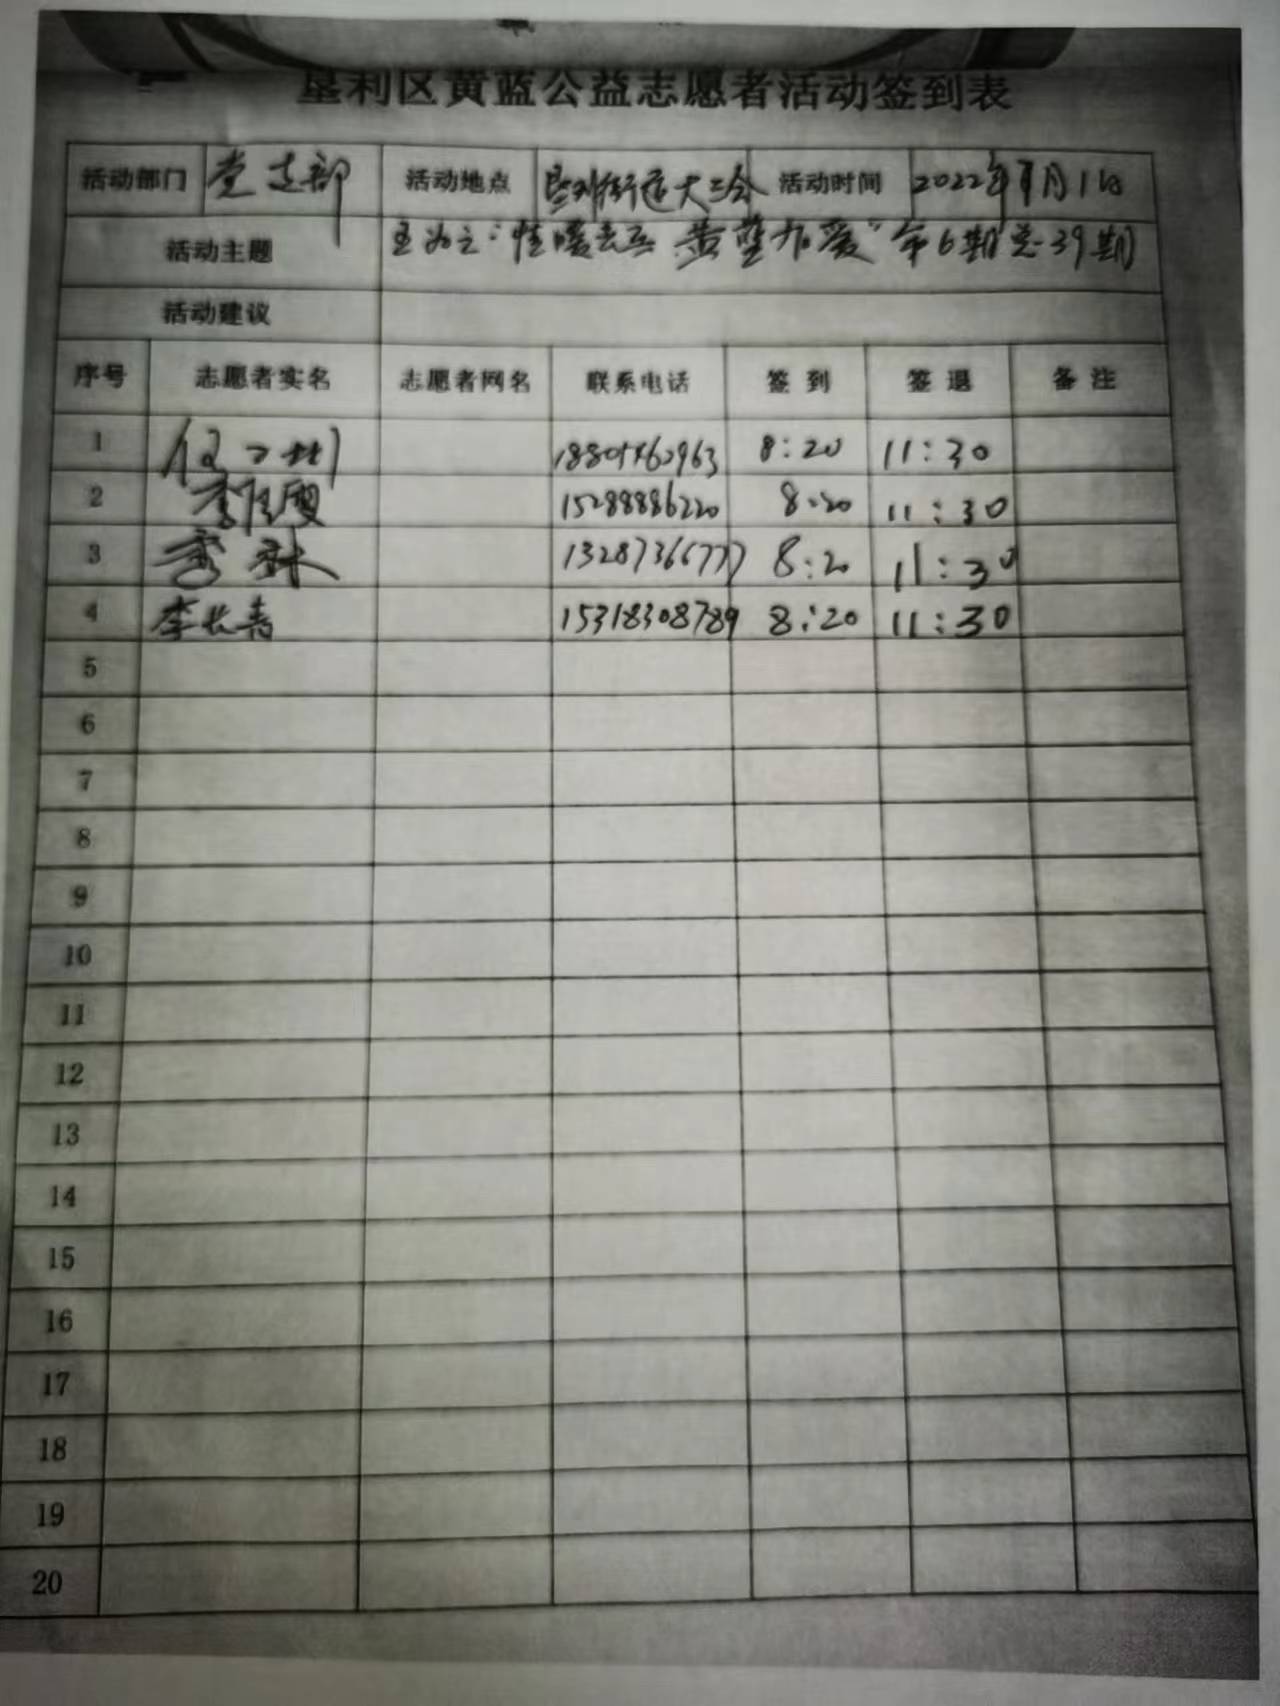 垦利区黄蓝公益志愿者活动签到表
活动部门 党支部 活动地点 垦利街道大三合 活动时间 2022年 月1日
活动主题 黄蓝加爱" 第6期总39期
活动建议
序号 志愿者实名 志愿者网名 联系电话 签到 签退 备注
1 8:20 11:30
2 李佳霞 15288886220 8:20 11:30
3 13287366777 8:20 11:30
4 李长青 15318308789 8:20 11:30
5
6
7
8
9
10
11
12
13
14
15
16
17
18
19
20